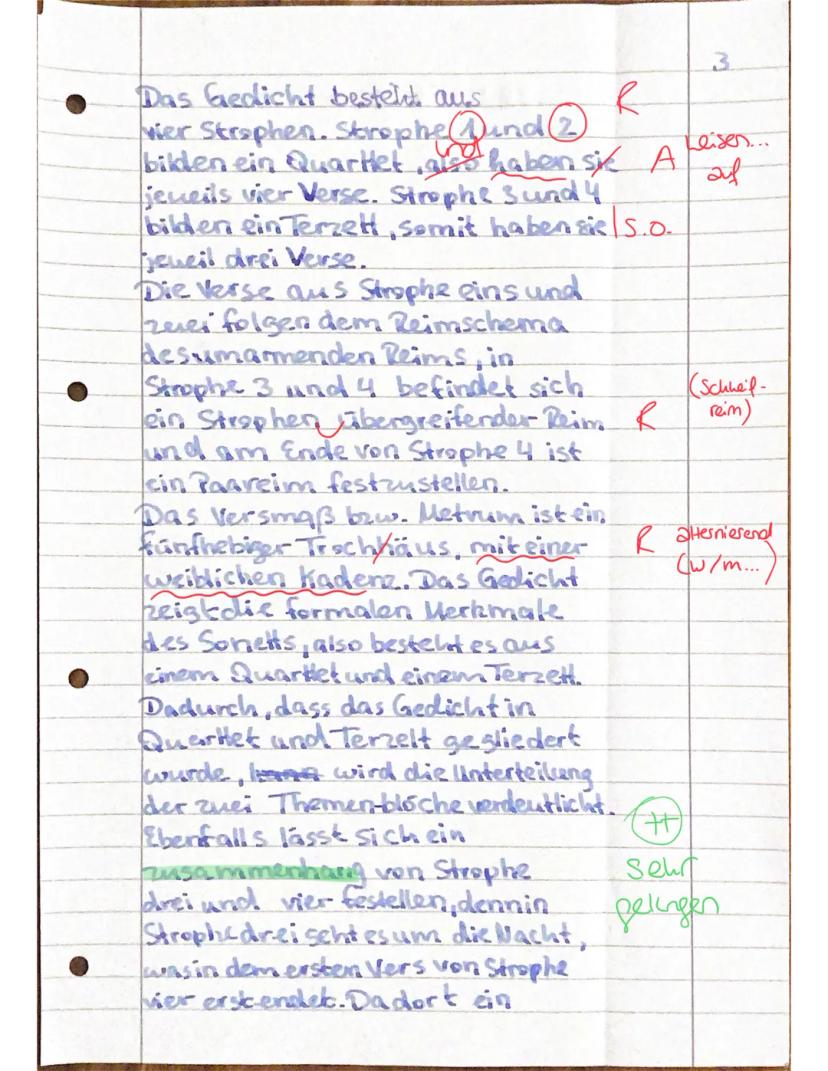 3
Das Gedicht besteht aus R
vier Strophen. Strophe 1 und 2
und
bilden ein Quartket, also haben sie A weisen... auf
jeweils vier Verse. Strophe 3 und 4
bilden ein Terzett, somit haben sie s.o.
jeweil drei Verse.
Die Verse aus Strophe eins und
zwei folgen dem Reimschema
des umarmenden Reims, in
Strophe 3 und 4 befindet sich (Schweif-
ein Strophen übergreifender Reim R reim)
und am Ende von Strophe 4 ist
ein Paareim festzustellen.
Das Versmaß bzw. Metrum ist ein
fünfhebiger Trochhäus, mit einer R alternierend
weiblichen Kadenz. Das Gedicht (w/m...)
zeigt die formalen Merkmale
des Sonetts, also besteht es aus
einem Quartket und einem Terzett.
Dadurch, dass das Gedicht in
Quartket und Terzett gegliedert
wurde, kann wird die Unterteilung
der zwei Themen-blöcke verdeutlicht. ++
Ebenfalls lässt sich ein
zusammenhang von Strophe sehr
drei und vier festellen, denn in gelungen
Strophe drei geht es um die Nacht,
was in dem ersten Vers von Strophe
vier erst endet. Da dort ein